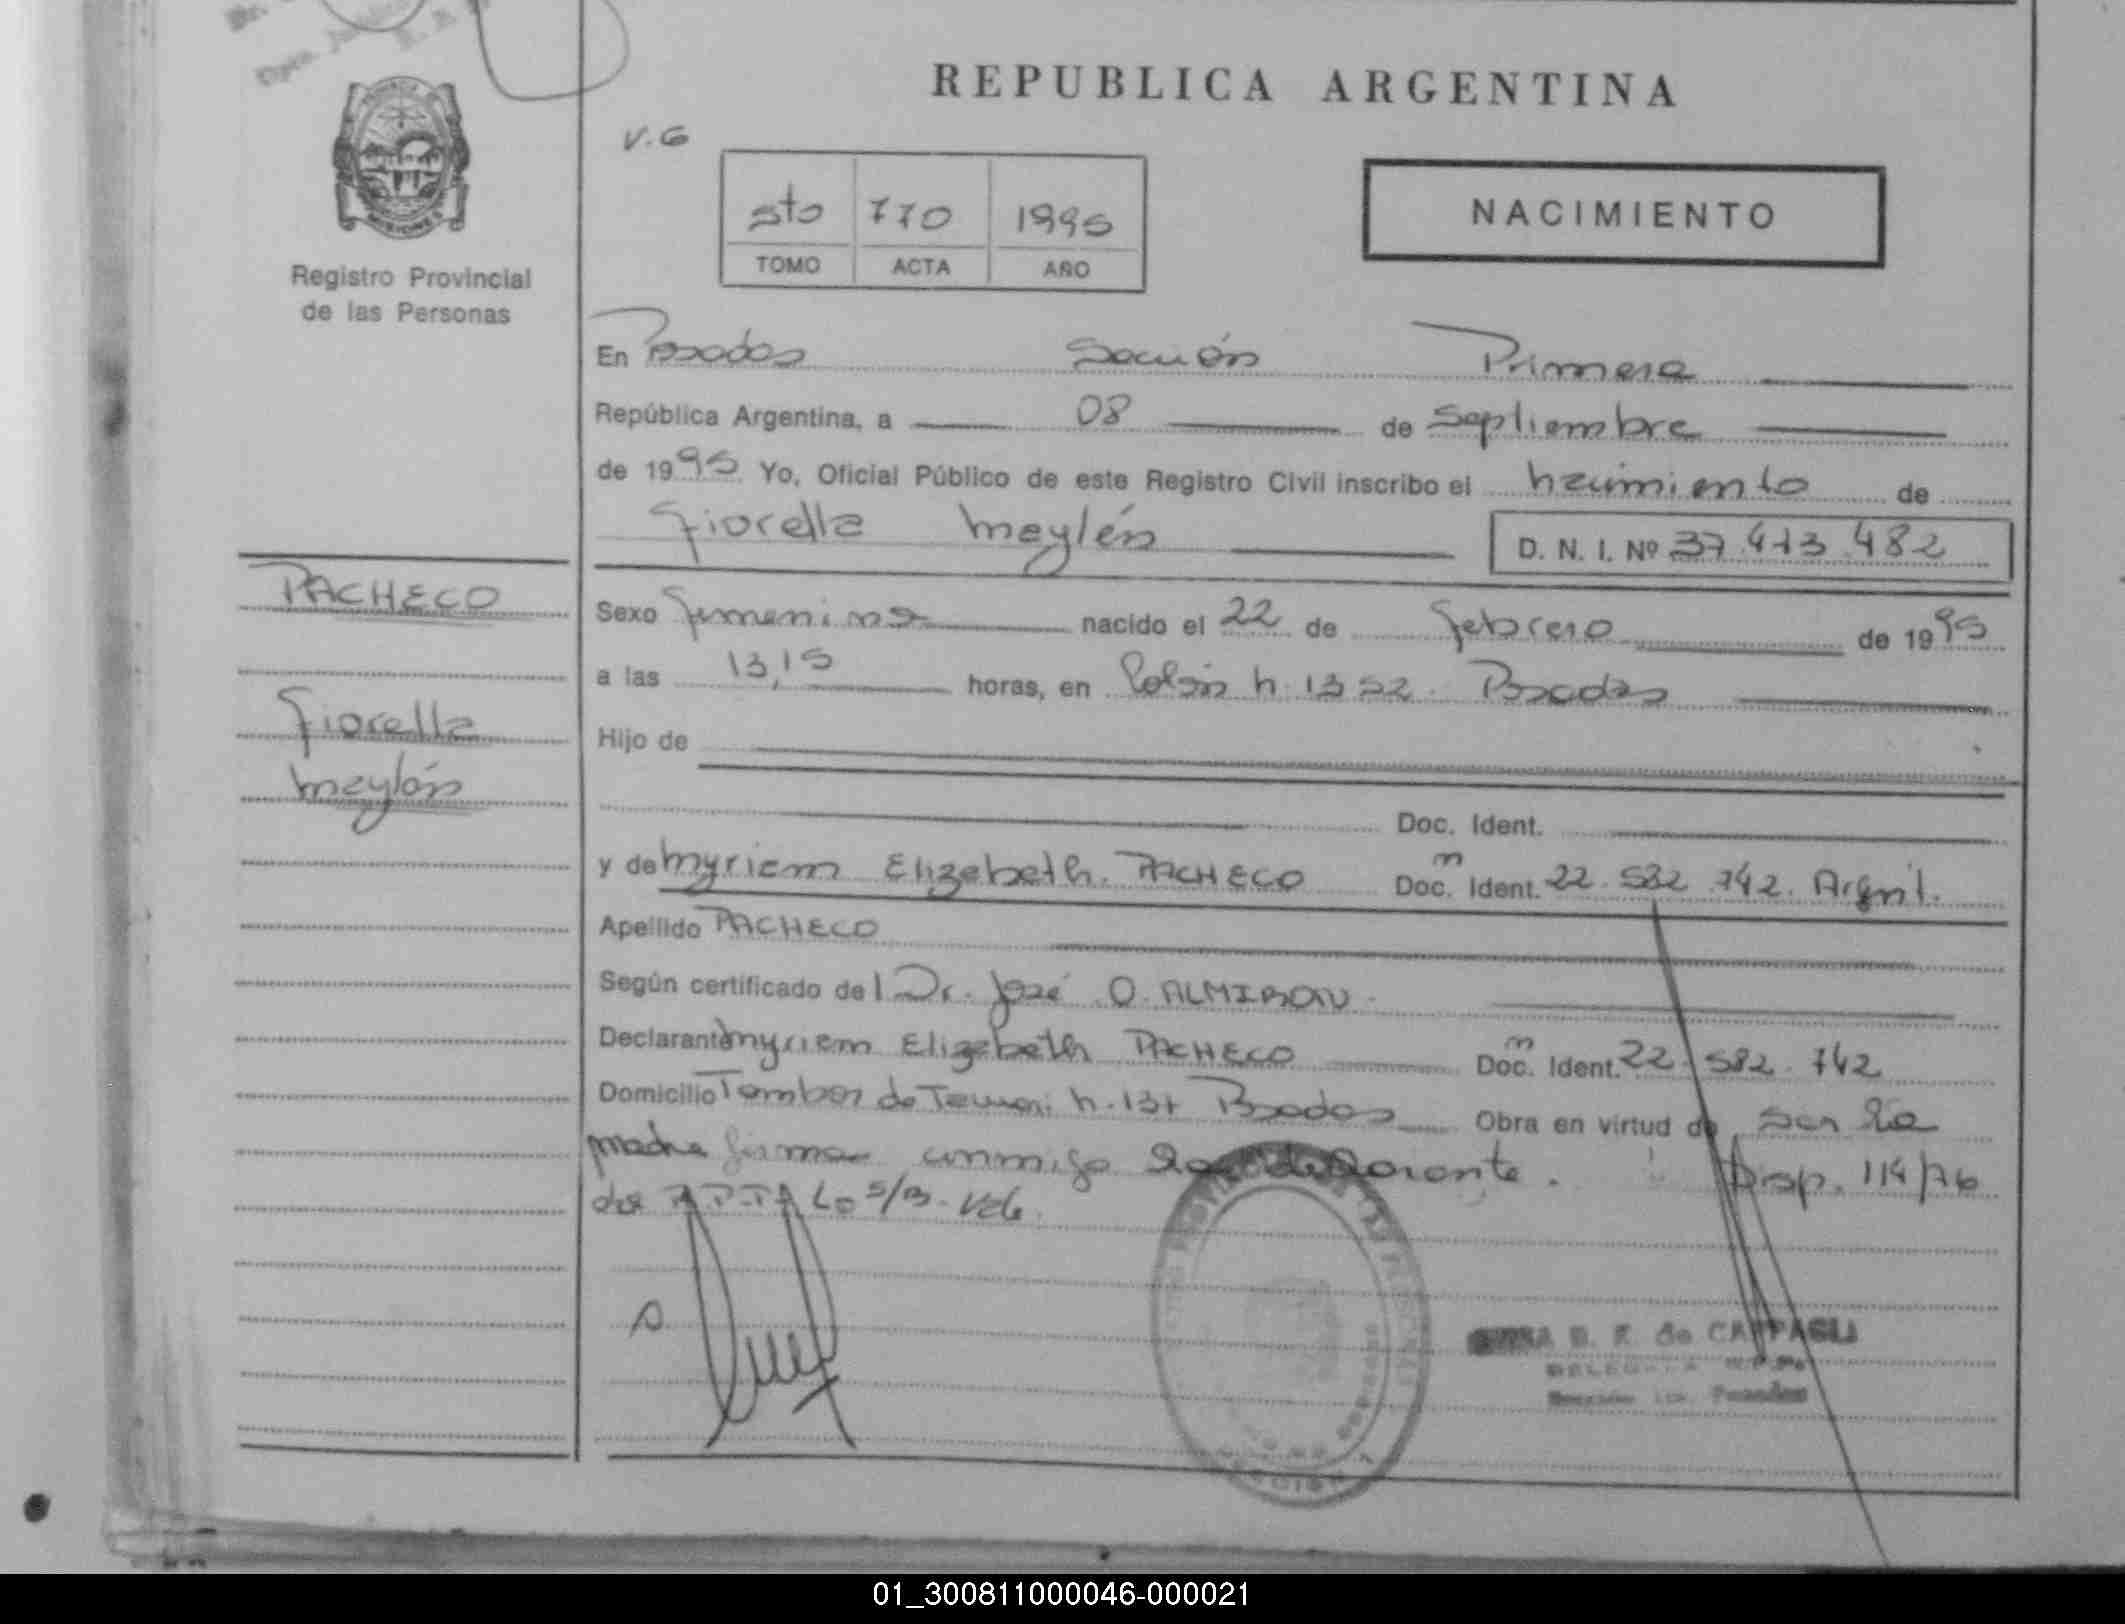 REPUBLICA ARGENTINA
V.G
5to 770 1995
TOMO ACTA AÑO
NACIMIENTO
MISIONES
Registro Provincial
de las Personas
En Posadas Sección Primera
República Argentina, a 08 de Septiembre
de 1995 Yo, Oficial Público de este Registro Civil inscribo el nacimiento de
Fiorella Maylén
D. N. I. Nº 37.413.482
PACHECO
Fiorella
Maylén
Sexo femenino nacido el 22 de febrero de 1995
a las 13,15 horas, en Colón n. 1352. Posadas
Hijo de
Doc. Ident.
y de Myriam Elizabeth PACHECO Doc. Ident. m 22.582.742. Argnt.
Apellido PACHECO
Según certificado del Dr. José O. ALMIRON
Declarante Myriam Elizabeth PACHECO Doc. Ident. m 22.582.742
Domicilio Tambor de Tacuarí n. 137 Posadas Obra en virtud de ser la
madre firma conmigo declarante. Disp. 114/76
S/B. Vale
B. F. de CAFFAGLI
DELEGADA
Sección 1ra. Posadas
01_300811000046-000021